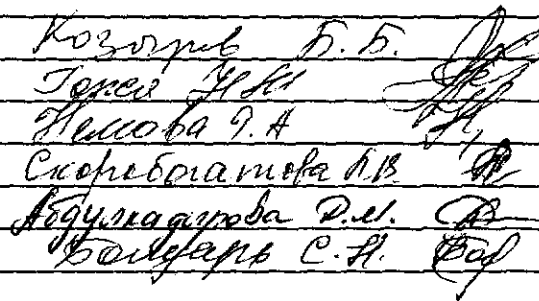 Козырев Б. Б.
Н.Н.
Немова Г. А
Скоробогатова Л.В.
Абдулкадырова Д.М.
Бондарь С. Н.